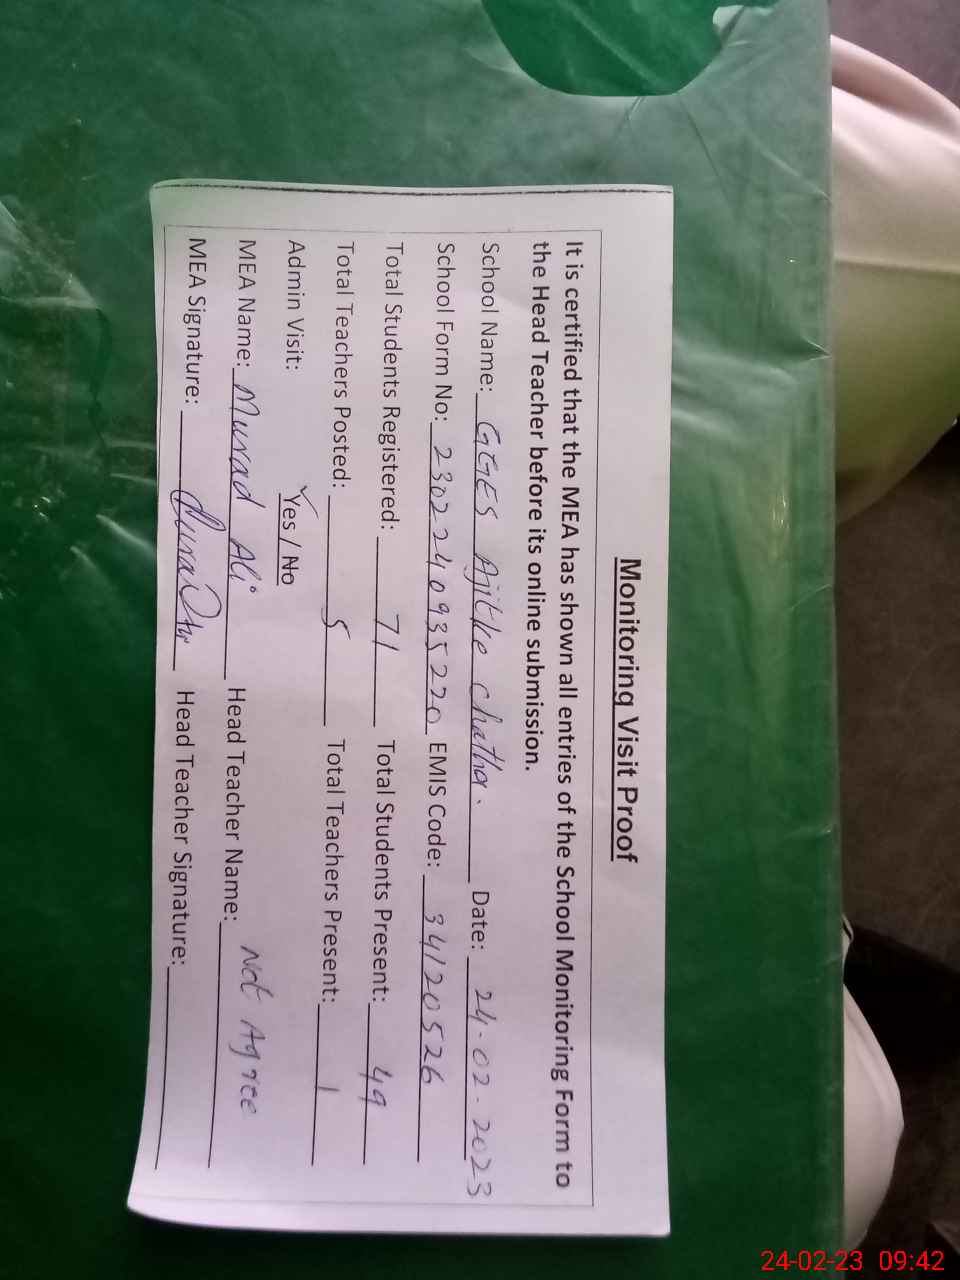 Monitoring Visit Proof
It is certified that the MEA has shown all entries of the School Monitoring Form to
the Head Teacher before its online submission.
School Name: GGES Ajitke chatha. Date: 24-02-2023
School Form No: 2302240935220 EMIS Code: 34120526
Total Students Registered: 71 Total Students Present: 49
Total Teachers Posted: 5 Total Teachers Present: 1
Admin Visit: Yes / No
MEA Name: Murad Ali Head Teacher Name: Not Agree
MEA Signature: Head Teacher Signature:
24-02-23 09:42